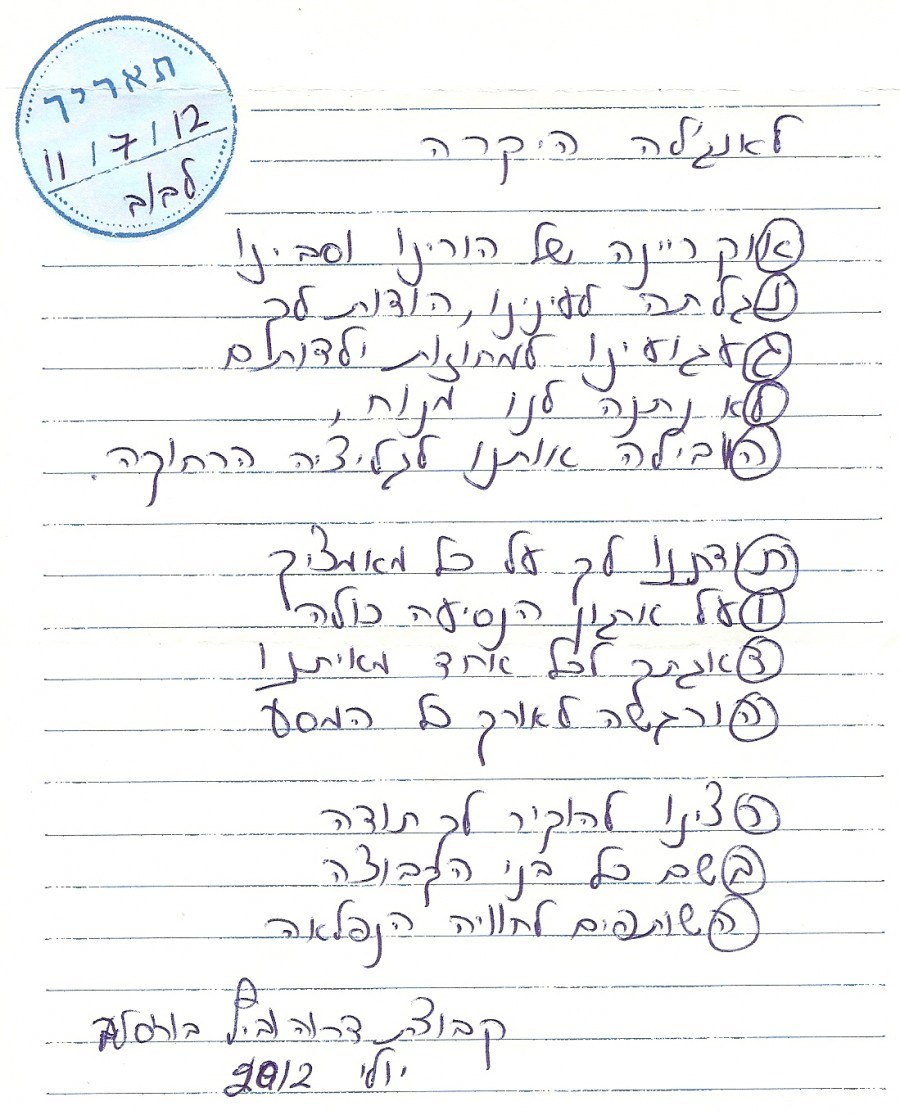 תאריך
11/7/12
לבוב
לאנג'לה היקרה
אוקריינה של הורינו וסבינו
נגלתה לעינינו, הודות לך
געגועינו למחוזות ילדותם
לא נתנה לנו מנוח,
הובילה אותנו לגליציה הרחוקה.
תודתנו לך על כל מאמציך
ועל ארגון הנסיעה כולה
דאגתך לכל אחד מאיתנו
הורגשה לאורך כל המסע
רצינו להוקיר לך תודה
בשם כל בני הקבוצה
השותפים לחוויה הנפלאה
קבוצת דרוהוביץ' בוריסלב
יולי 2012